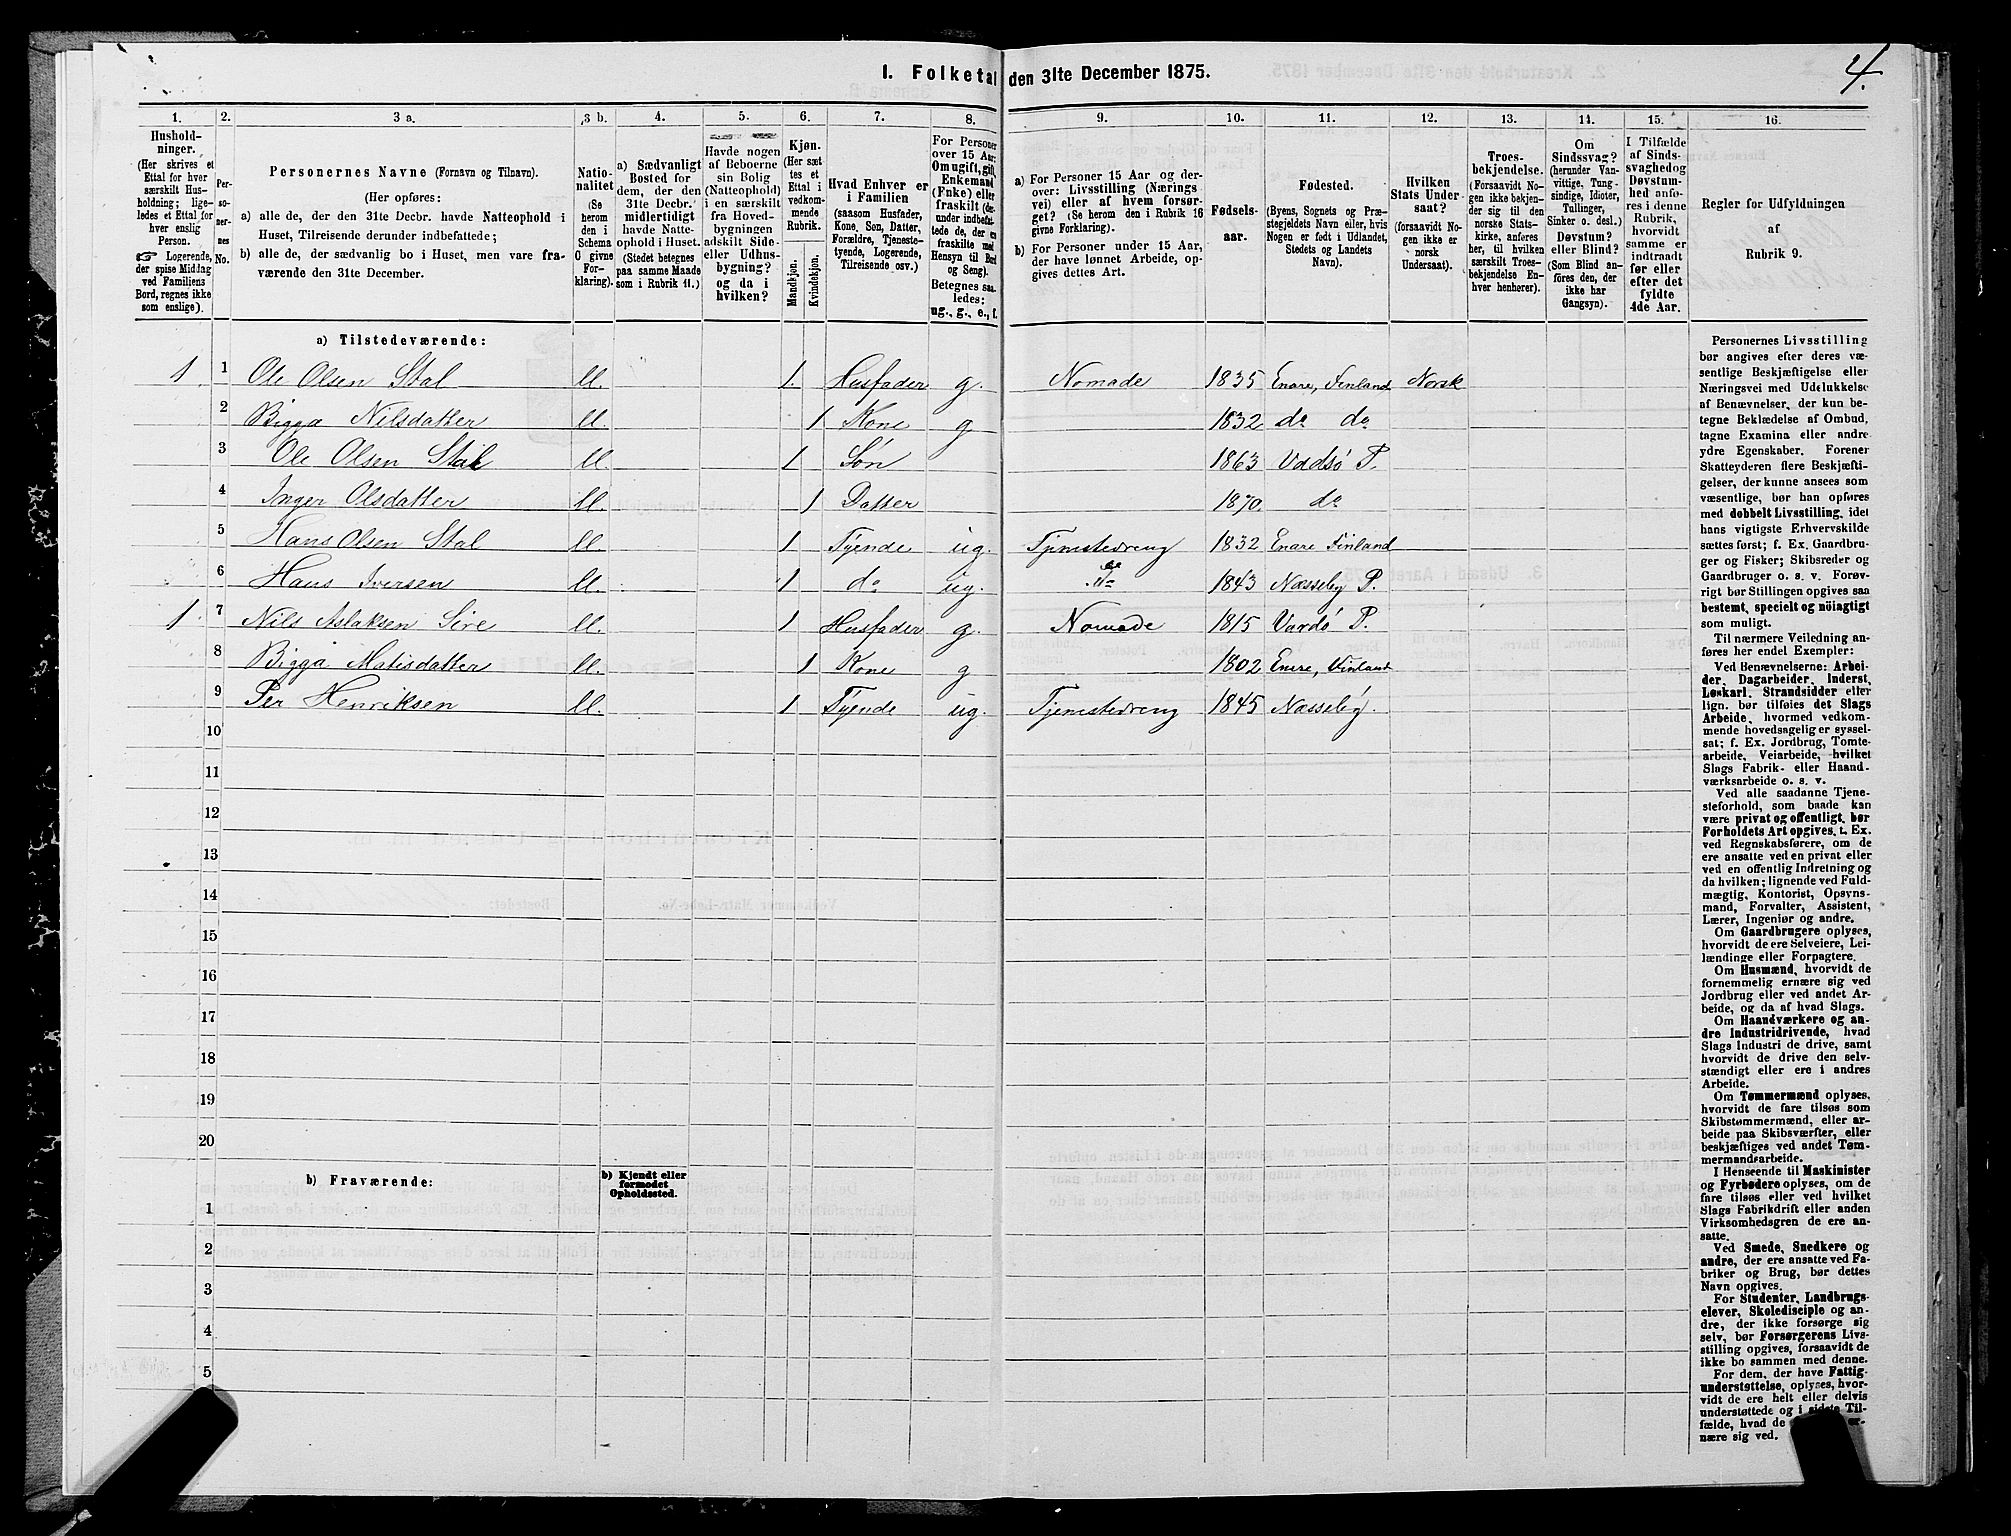 4.
1. Folketal den 31te December 1875.
1.
2.
3 a.
3 b.
4.
5.
6.
7.
8.
9.
10.
11.
12.
13.
14.
15.
16.
Hushold-
ninger.
(Her skrives et
Ettal for hver
særskilt Hus-
holdning; lige-
ledes et Ettal for
hver enslig
Person.
☞ Logerende,
der spise Middag
ved Familiens
Bord, regnes ikke
som enslige).
Per-
so-
ner-
nes
No.
Personernes Navne (Fornavn og Tilnavn).
(Her opføres:
a) alle de, der den 31te Decbr. havde Natteophold i
Huset, Tilreisende derunder indbefattede;
b) alle de, der sædvanlig bo i Huset, men vare fra-
værende den 31te December.
Natio-
nalitet
(Se
herom
den i
Schema
C givne
For-
klaring).
a) Sædvanligt
Bosted for
dem, der den
31te Decbr.
midlertidigt
havde Natte-
ophold i Huset.
(Stedet betegnes
paa samme Maade
som i Rubrik 11.)
Havde nogen
af Beboerne
sin Bolig
(Natteophold)
i en særskilt
fra Hoved-
bygningen
adskilt Side-
eller Udhus-
bygning?
og da i
hvilken?
Kjøn.
(Her sæt-
tes et
Ettal i
vedkom-
mende
Rubrik.
Mandkjøn.
Kvindekjøn.
Hvad Enhver er
i Familien
(saasom Husfader,
Kone, Søn, Datter,
Forældre, Tjeneste-
tyende, Logerende,
Tilreisende osv.)
For Personer
over 15 Aar:
Om ugift, gift,
Enkemand
(Enke) eller
fraskilt (der-
under indbefat-
tede de, der ere
fraskilte med
Hensyn til Bord
og Seng).
Betegnes saa-
ledes:
ug., g., e., f.
a) For Personer 15 Aar og der-
over: Livsstilling (Nærings
vei) eller af hvem forsør-
get? (Se herom den i Rubrik 16
givne Forklaring).
b) For Personer under 15 Aar,
der have lønnet Arbeide, op-
gives dettes Art.
Fødsels-
aar.
Fødested.
(Byens, Sognets og Præ-
stegjeldets Navn eller, hvis
Nogen er født i Udlandet,
Stedets og Landets
Navn).
Hvilken
Stats Under
saat?
(forsaavidt No-
gen ikke er
norsk
Undersaat).
Troes-
bekjendelse.
(Forsaavidt No-
gen ikke bekjen-
der sig til den
norske Stats-
kirke, anføres
her, til hvilken
særskilt Troes-
bekjendelse En-
hver henhører).
Om
Sindssvag?
(herunder Van-
vittige, Tung-
sindige, Idioter,
Tullinger,
Sinker o. desl.)
Døvstum?
eller Blind?
(Som Blind an-
føres den, der
ikke har
Gangsyn).
I Tilfælde
af Sinds-
svaghed og
Døvstum-
hed anfø-
res i denne
Rubrik,
hvorvidt
samme er
indtraadt
før eller
efter det
fyldte
4de Aar.
Regler for Udfyldningen
af
Rubrik 9.
a) Tilstedeværende:
1. 1 Ole Olsen Stal ll. 1. Husfader g. Nomade 1835 Enare, Finland Norsk
2 Bigga Nilsdatter ll. 1 Kone g 1832 do do
3 Ole Olsen Stal ll. 1 Søn 1863 Vadsö P.
4 Inger Olsdatter ll. 1 Datter 1870. do
5 Hans Olsen Stal ll. 1 Tyende ug. Tjenstedreng 1832 Enare Finland
6 Hans Iversen ll. 1 do ug. do 1843 Næsseby P.
1. 7 Nils Aslaksen Sire ll. 1 Husfader g. Nomade 1815 Vardö P.
8 Bigga Matisdatter ll. 1 Kone g 1802 Enare, Finland
9 Per Henriksen ll. 1 Tyende ug. Tjenstedreng 1845 Næsseby.
10
11
12
13
14
15
16
17
18
19
20
b) Fraværende:
b) Kjendt eller
formodet
Opholdssted.
1
2
3
4
5
Personernes Livsstilling
bør angives efter deres væ-
sentlige Beskjæftigelse eller
Næringsvei med Udelukkelse
af Benævnelser, der kun be-
tegne Beklædelse af Ombud,
tagne Examina eller andre
ydre Egenskaber. Forener
Skatteyderen flere Beskjæfti-
gelser, der kunne ansees som
væsentlige, bør han opføres
med dobbelt Livsstilling, idet
hans vigtigste Erhvervskilde
sættes først; f. Ex. Gaardbru-
ger og Fisker; Skibsreder og
Gaardbruger o. s. v. Forøv-
rigt bør Stillingen opgives saa
bestemt, specielt og nöiagtigt
som muligt.
Til nærmere Veiledning an-
føres her endel Exempler:
Ved Benævnelserne: Arbei-
der, Dagarbeider, Inderst,
Løskarl, Strandsidder eller
lign. bør tilføies det Slags
Arbeide, hvormed vedkom-
mende hovedsagelig er syssel-
sat; f. Ex. Jordbrug, Tomte-
arbeide, Veiarbeide, hvilket
Slags Fabrik- eller Haand-
værksarbeide o. s. v.
Ved alle saadanne Tjene-
steforhold, som baade kan
være privat og offentligt, bør
Forholdets Art opgives, t. Ex.
ved Regnskabsførere, om de
ere ansatte ved en privat eller
ved en offentlig Indretning og
da hvilken; lignende ved Fuld-
mægtig, Kontorist, Opsyns-
mand, Forvalter, Assistent,
Lærer, Ingeniør og andre.
Om Gaardbrugere oplyses,
hvorvidt de ere Selveiere, Lei-
lændinge eller Forpagtere.
Om Husmænd, hvorvidt de
fornemmelig ernære sig ved
Jordbrug eller ved andet Ar-
beide, og da af hvad Slags.
Om Haandværkere og an-
dre Industridrivende, hvad
Slags Industri de drive, samt
hvorvidt de drive den selv-
stændigt eller ere i andres
Arbeide.
Om Tømmermænd oplyses,
hvorvidt de fare tilsøs som
Skibstømmermænd, eller ar-
beide paa Skibsværfter, eller
beskjæftiges ved andet Tøm-
mermandsarbeide.
I Henseende til Maskinister
og Fyrbødere oplyses, om de
fare tilsøs eller ved hvilket
Slags Fabrikdrift eller anden
Virksomhedsgren de ere an-
satte.
Ved Smede, Snedkere og
andre, der ere ansatte ved Fa-
briker og Brug, bør dettes
Navn opgives.
For Studenter, Landbrugs-
elever, Skoledisciple og an-
dre, der ikke forsørge sig
selv, bør Forsørgerens Livs-
stilling opgives, forsaavidt de
ikke bo sammen med denne.
For dem, der have Fattig-
understøttelse, oplyses, hvor-
vidt de ere helt eller delvis
understøttede og i sidste Til-
fælde, hvad de er-
nære sig ved.